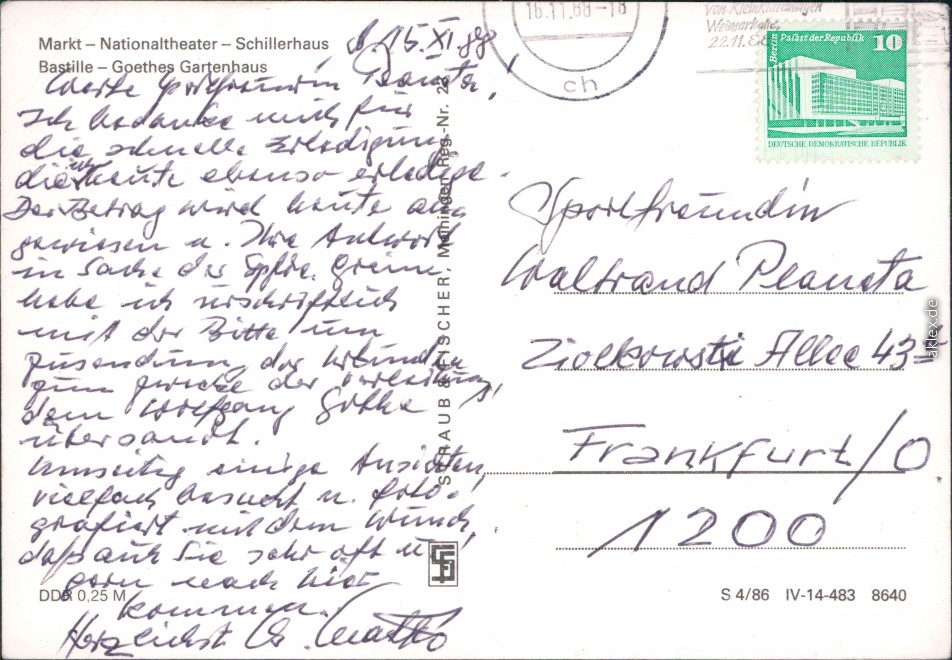 Markt – Nationaltheater – Schillerhaus
Bastille – Goethes Gartenhaus
d. 15. XI. 88
Werte Sportfreundin Planeta,
Ich bedanke mich für
die schnelle Erledigung
die ich heute ebenso erledige.
Der Betrag wird heute an-
gewiesen u. Ihre Antwort
in Sache der Spfde.
habe ich urschriftlich
mit der Bitte um
Zusendung der Urkunden
zum Zwecke der Verleihung,
dem Wolfgang
übersandt.
Umseitig einige Ansichten,
vielfach besucht u. foto-
grafiert mit dem Wunsch,
daß auch Sie sehr oft u.
gern nach hier
kommen.
Herzlichst
DDR 0,25 M
STRAUB & FISCHER, Meiningen Reg.-Nr. 28
16.11.88-18
ch
von Kleinkunsttagen
Weimarhalle,
22.11.
Berlin Palast der Republik 10
DEUTSCHE DEMOKRATISCHE REPUBLIK
Sportfreundin
Waltraud Planeta
Ziolkowski Allee 43
Frankfurt/O.
1200
S 4/86 IV-14-483 8640
aklex.de